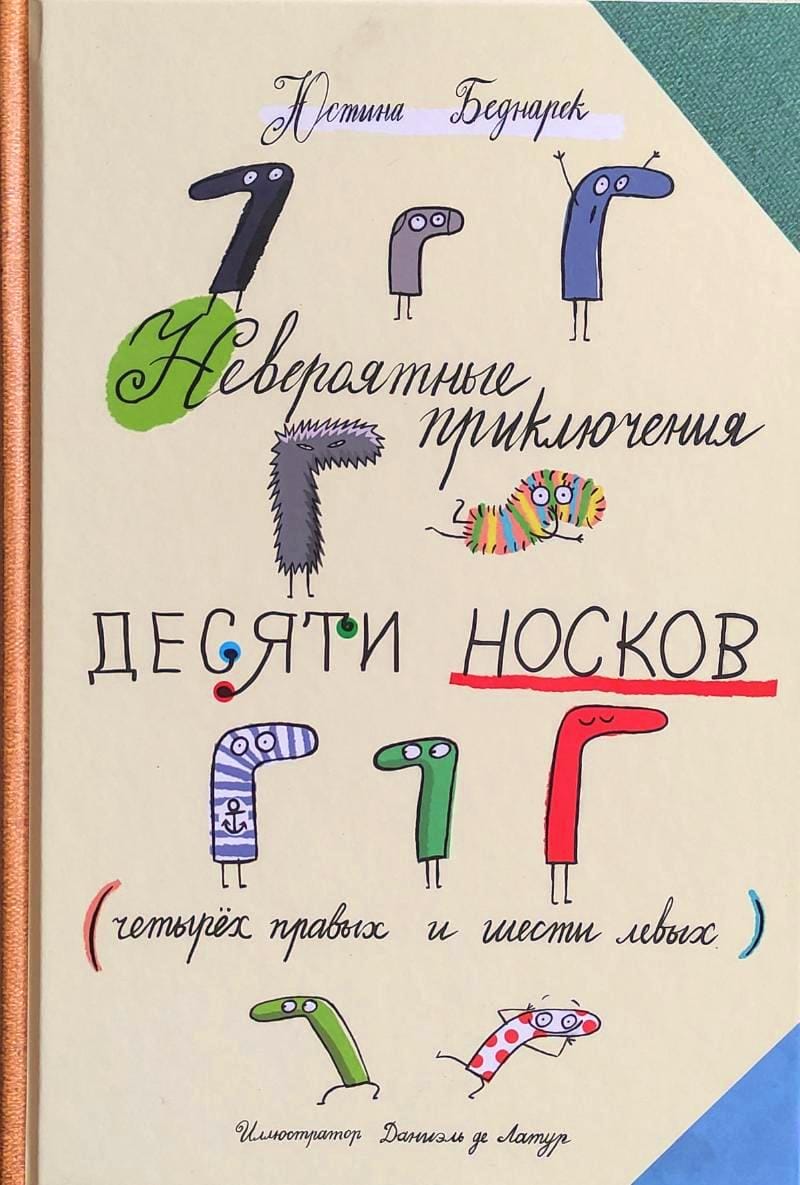 Юстина Беднарек
Невероятные
приключения
ДЕСЯТИ НОСКОВ
(четырёх правых и шести левых)
Иллюстратор Даниэль де Латур